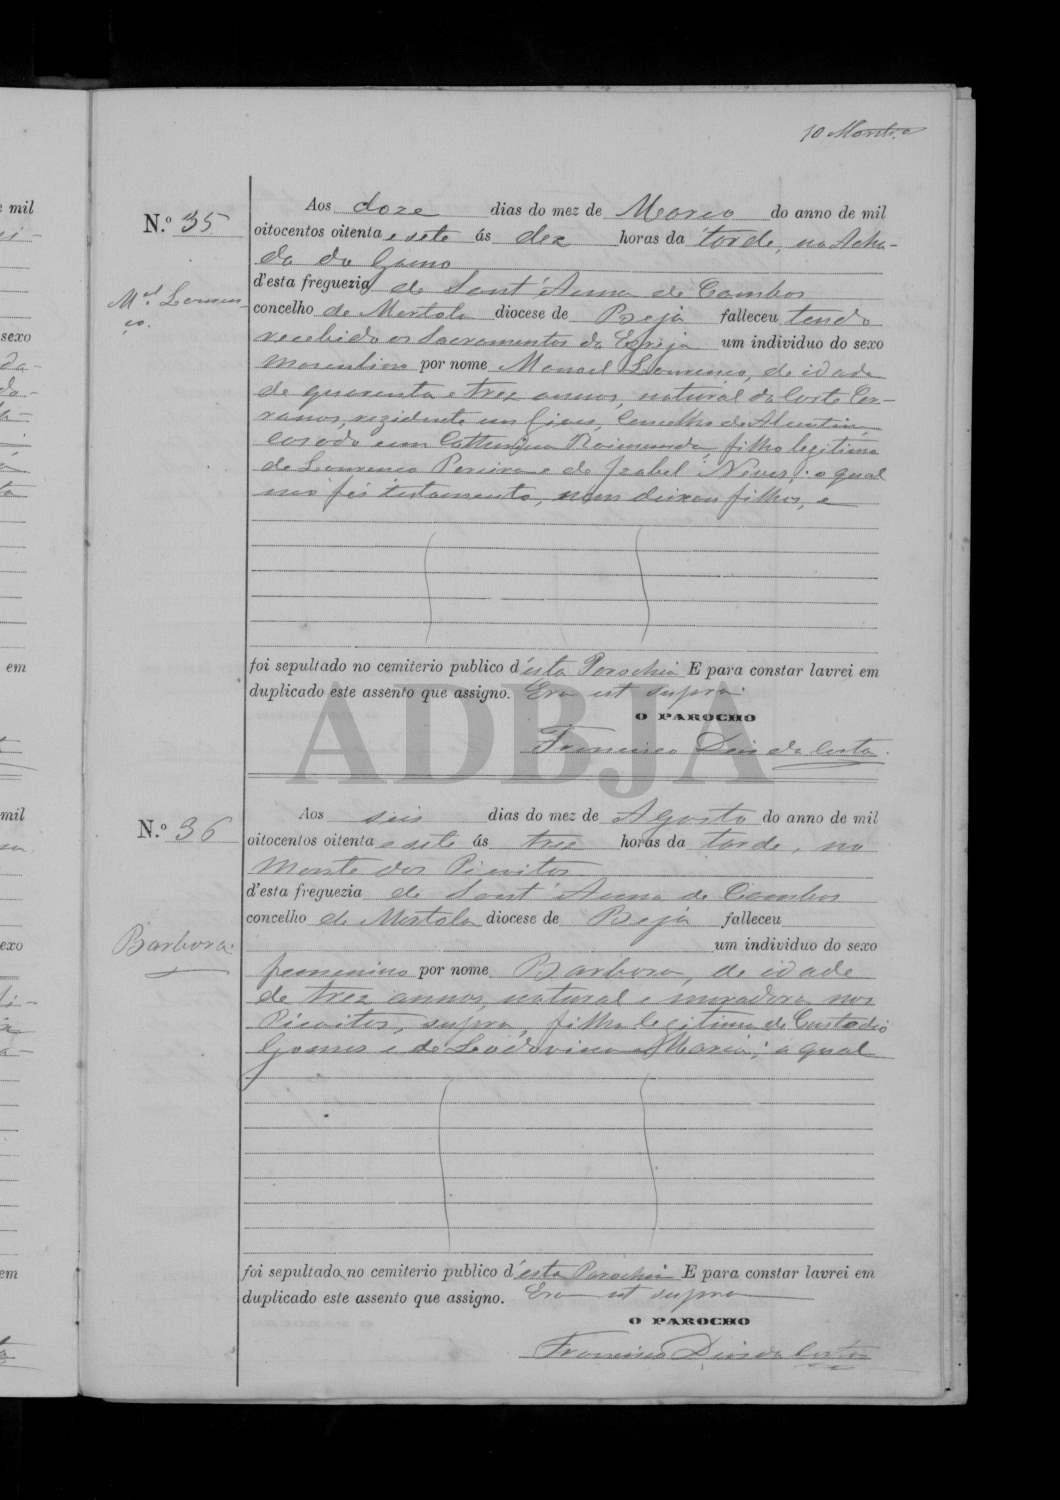 10
N.º 35
M.el Louren-
ço.
Aos doze dias do mez de Março do anno de mil
oitocentos oitenta e sete ás dez horas da tarde, na Acha-
da do Gamo
d'esta freguezia de Sant'Anna de Cambas
concelho de Mertola diocese de Beja falleceu tendo
recebido os Sacramentos da Egreja um individuo do sexo
masculino por nome Manoel Lourenço, de idade
de quarenta e trez annos, natural da Corte Ser-
ranos, rezidente em Giões, Concelho de Alcoutim,
casado com Catharina Raimunda, filho legitimo
de Lourenço Pereira e de Izabel Neves; o qual
não fes testamento, nem deixou filhos, e
foi sepultado no cemiterio publico d'esta Parochia E para constar lavrei em
duplicado este assento que assigno. Era ut supra.
O PAROCHO
Francisco Dias da Costa.
ADBJA
N.º 36
Barbora.
Aos seis dias do mez de Agosto do anno de mil
oitocentos oitenta e sete ás trez horas da tarde, no
Monte dos Picoitos
d'esta freguezia de Sant'Anna de Cambas
concelho de Mertola diocese de Beja falleceu
um individuo do sexo
femenino por nome Barbora, de idade
de trez annos, natural e moradora nos
Picoitos, supra, filha legitima de Custodio
Gomes e de Ludovina Maria; a qual
foi sepultado no cemiterio publico d'esta Parochia E para constar lavrei em
duplicado este assento que assigno. Era ut supra
O PAROCHO
Francisco Dias da Costa